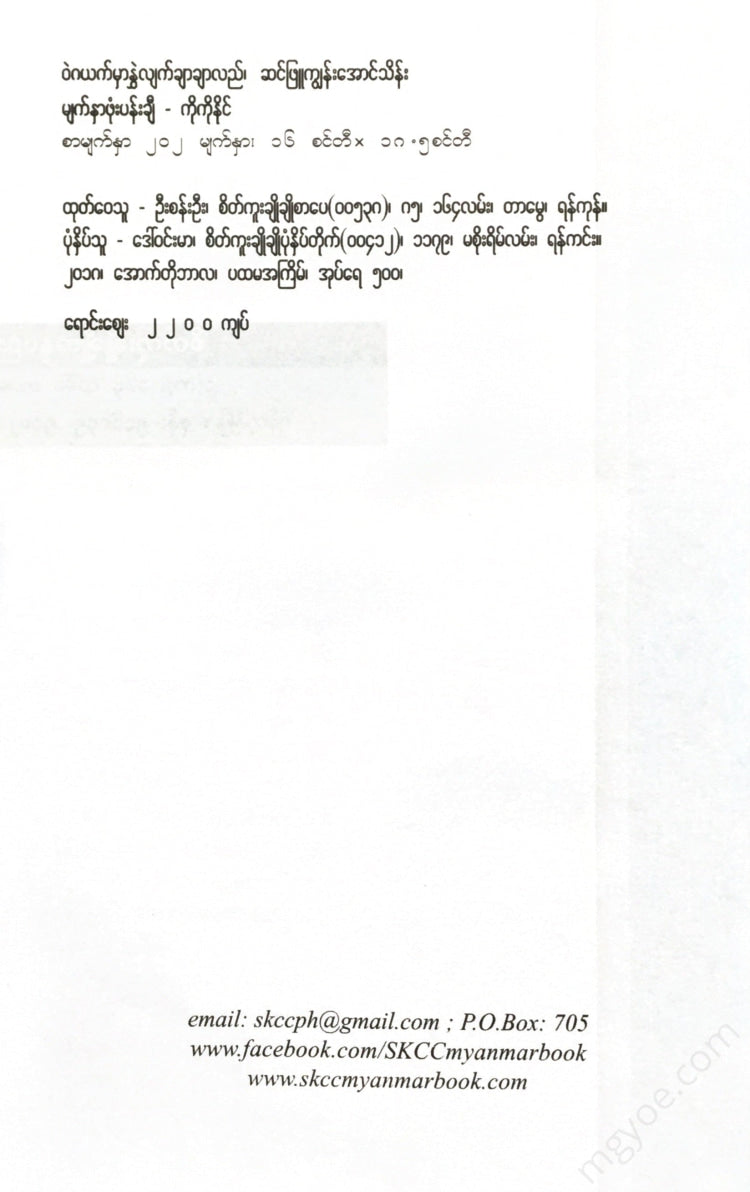 ဝဲဂယက်မှာနွဲ့လျက်ချာချာလည်၊ ဆင်ဖြူကျွန်းအောင်သိန်း
မျက်နှာဖုံးပန်းချီ - ကိုကိုနိုင်
စာမျက်နှာ ၂၀၂ မျက်နှာ၊ ၁၆ စင်တီ× ၁၈.၅စင်တီ
ထုတ်ဝေသူ - ဦးစန်းဦး၊ စိတ်ကူးချိုချိုစာပေ(၀၀၅၃၈)၊ ဂ၅၊ ၁၆၄လမ်း၊ တာမွေ၊ ရန်ကုန်။
ပုံနှိပ်သူ - ဒေါ်ဝင်းမာ၊ စိတ်ကူးချိုချိုပုံနှိပ်တိုက်(၀၀၄၁၂)၊ ၁၁၇၉၊ မစိုးရိမ်လမ်း၊ ရန်ကင်း။
၂၀၁၈၊ အောက်တိုဘာလ၊ ပထမအကြိမ်၊ အုပ်ရေ ၅၀၀၊
ရောင်းဈေး ၂၂၀၀ ကျပ်
email: skccph@gmail.com ; P.O.Box: 705
www.facebook.com/SKCCmyanmarbook
www.skccmyanmarbook.com
mgyoe.com